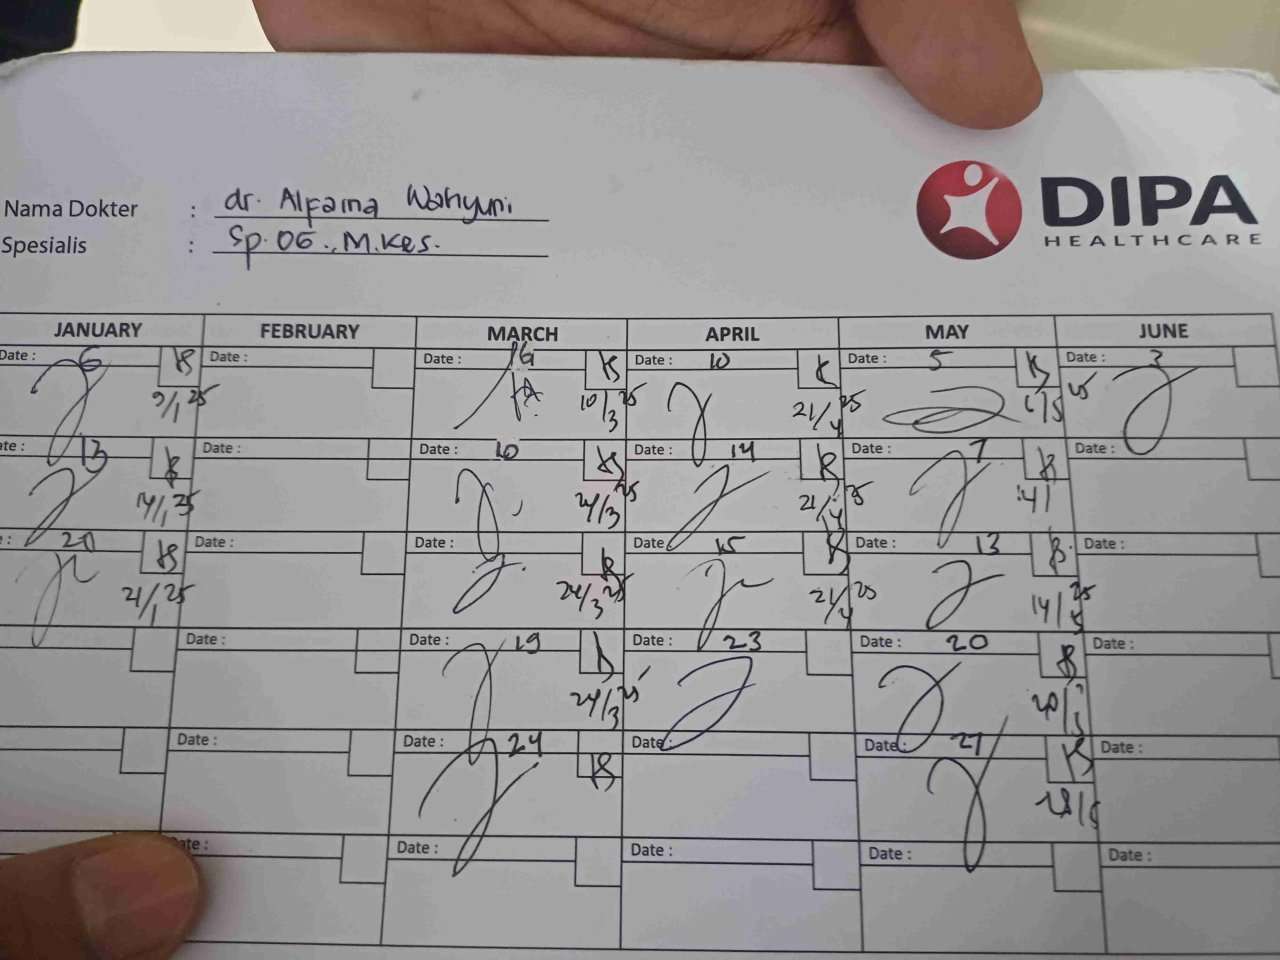 Nama Dokter : dr. Alfaina Wahyuni
Spesialis : Sp.OG., M.Kes.
DIPA
HEALTHCARE
JANUARY FEBRUARY MARCH APRIL MAY JUNE
Date : 6 Date : Date : Date : 10 Date : 5 Date : 3
9/1 25 10/3 25 21/4 25 6/5 25
Date : 13 Date : Date : 10 Date : 14 Date : 7 Date :
14/1 25 24/3 25 21/4 25 14/
: 20 Date : Date : Date : 15 Date : 13 Date :
21/1 25 24/3 25 21/4 25 14/5 25
Date : Date : 19 Date : 23 Date : 20 Date :
24/3 25 20/5
Date : Date : 24 Date : Date : 27 Date :
28/5
Date : Date : Date : Date : Date :